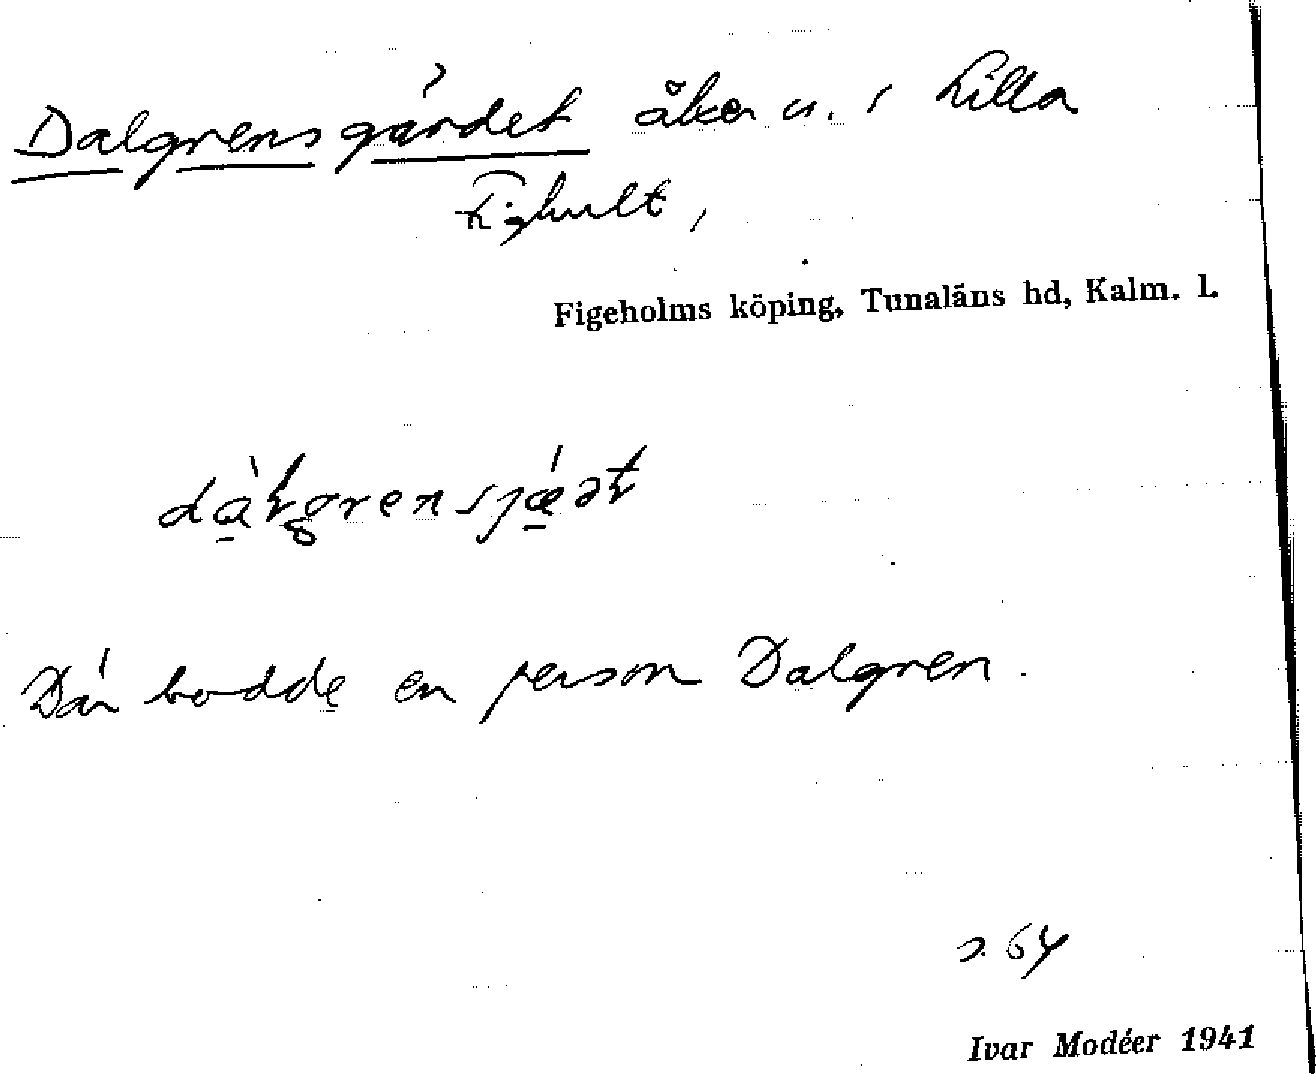 Dalgrensgärdet åker u. i Lilla
Fighult,
Figeholms köping, Tunaläns hd, Kalm. l.
Där bodde en person Dalgren.
s. 64
Ivar Modéer 1941